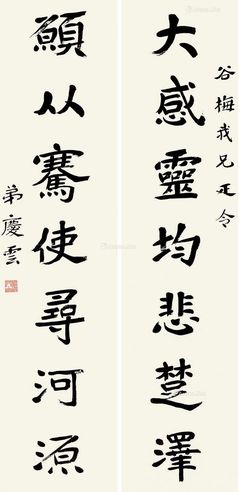 谷梅我兄正令
大感靈均悲楚澤
願從騫使尋河源
弟慶雲